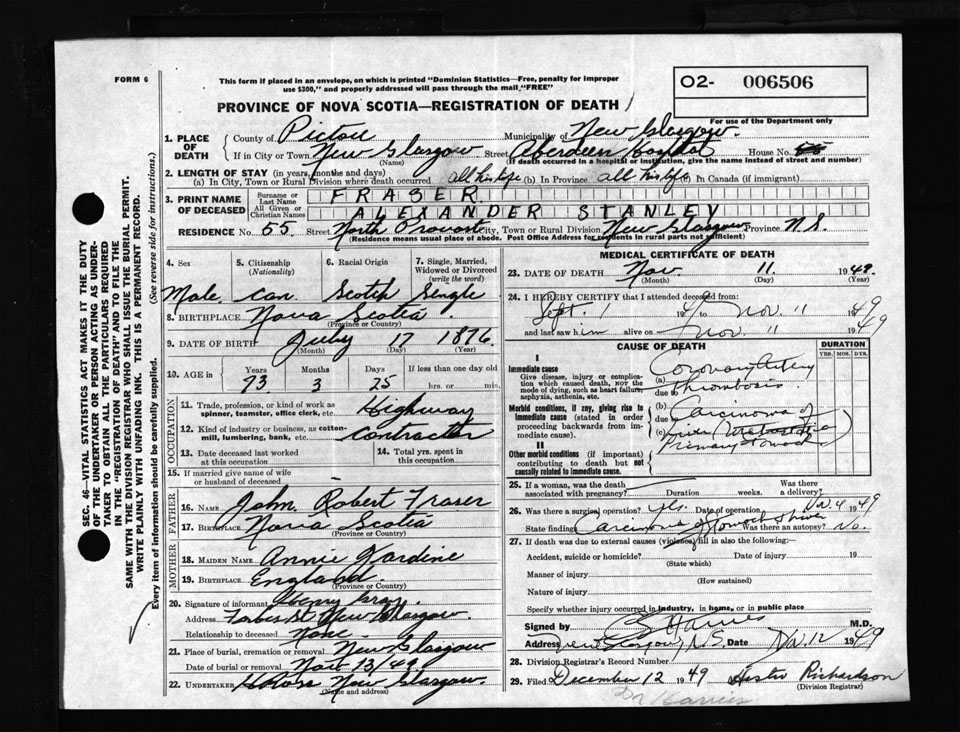 FORM 6
This form if placed in an envelope, on which is printed "Dominion Statistics—Free, penalty for improper
use $300," and properly addressed will pass through the mail "FREE"
O2- 006506
PROVINCE OF NOVA SCOTIA—REGISTRATION OF DEATH
For use of the Department only
SEC. 46—VITAL STATISTICS ACT MAKES IT THE DUTY
OF THE UNDERTAKER OR PERSON ACTING AS UNDER-
TAKER TO OBTAIN ALL THE PARTICULARS REQUIRED
IN THE "REGISTRATION OF DEATH" AND TO FILE THE
SAME WITH THE DIVISION REGISTRAR WHO SHALL ISSUE THE BURIAL PERMIT.
WRITE PLAINLY WITH UNFADING INK. THIS IS A PERMANENT RECORD.
Every item of Information should be carefully supplied. (See reverse side for instructions.)
1. PLACE OF DEATH County of Pictou Municipality of New Glasgow.
If in City or Town New Glasgow Street Aberdeen Hospital House No.
(Name) (If death occurred in a hospital or institution, give the name instead of street and number)
2. LENGTH OF STAY (in years, months and days)
(a) In City, Town or Rural Division where death occurred all his life (b) In Province all his life (c) In Canada (if immigrant)
3. PRINT NAME OF DECEASED Surname or Last Name FRASER
All Given or Christian Names ALEXANDER STANLEY
RESIDENCE No. 55. Street North Provost City, Town or Rural Division New Glasgow Province N.S.
(Residence means usual place of abode. Post Office Address for residents in rural parts not sufficient)
4. Sex 5. Citizenship (Nationality) 6. Racial Origin 7. Single, Married, Widowed or Divorced (write the word)
Male. Can. Scotch Single
8. BIRTHPLACE Nova Scotia
(Province or Country)
9. DATE OF BIRTH July 17 1876
(Month) (Day) (Year)
10. AGE in Years Months Days If less than one day old
73 3 25 hrs. or min.
OCCUPATION
11. Trade, profession, or kind of work as spinner, teamster, office clerk, etc. Highway
12. Kind of industry or business, as cotton-mill, lumbering, bank, etc. Contractor
13. Date deceased last worked at this occupation 14. Total yrs. spent in this occupation
15. If married give name of wife or husband of deceased
FATHER
16. Name John Robert Fraser
17. Birthplace Nova Scotia
(Province or Country)
MOTHER
18. Maiden Name Annie Jardine
19. Birthplace England.
(Province or Country)
20. Signature of informant Henry Gray
Address Forbes St New Glasgow.
Relationship to deceased None.
21. Place of burial, cremation or removal New Glasgow
Date of burial or removal Nov 13/49
22. Undertaker H Ross New Glasgow.
(Name and address)
MEDICAL CERTIFICATE OF DEATH
23. DATE OF DEATH Nov 11 1949.
(Month) (Day) (Year)
24. I HEREBY CERTIFY that I attended deceased from
Sept. 1 49 to Nov 11 1949
and last saw him alive on Nov. 11 1949
CAUSE OF DEATH DURATION
YRS. MOS. DYS.
I
Immediate cause
Give disease, injury or complication which caused death, NOT the mode of dying, such as heart failure, asphyxia, asthenia, etc.
(a) Coronary Artery
thrombosis.
due to
Morbid conditions, if any, giving rise to immediate cause (stated in order proceeding backwards from immediate cause).
(b) Carcinoma of
due
Liver (Metastatic
Primary stomach)
II
Other morbid conditions (if important) contributing to death but not causally related to immediate cause.
25. If a woman, was the death associated with pregnancy? Duration weeks. Was there a delivery?
26. Was there a surgical operation? yes. Date of operation Nov. 4 1949
State findings Carcinoma of stomach & liver Was there an autopsy? No.
27. If death was due to external causes (violence) fill in also the following:—
Accident, suicide or homicide? Date of injury 19
(State which)
Manner of injury
(How sustained)
Nature of injury
Specify whether injury occurred in Industry, in home, or in public place
Signed by Harries M.D.
Address New Glasgow, N.S. Date Nov. 12 1949
28. Division Registrar's Record Number
29. Filed December 12 1949 Hester Richardson
(Division Registrar)
Dr Harries